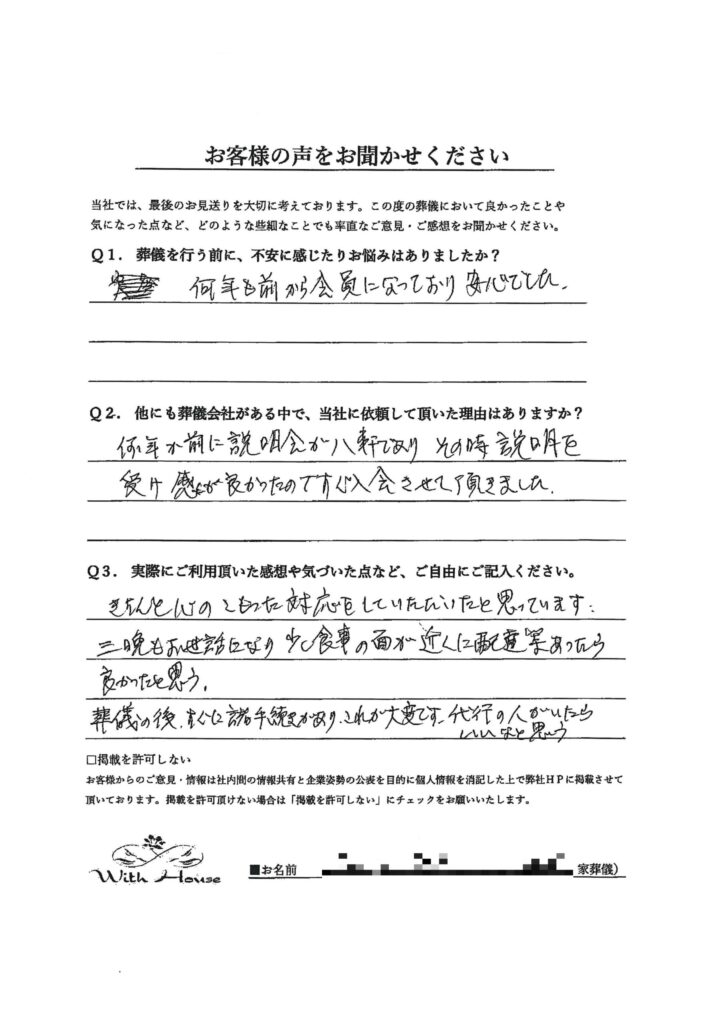 お客様の声をお聞かせください
当社では、最後のお見送りを大切に考えております。この度の葬儀において良かったことや
気になった点など、どのような些細なことでも率直なご意見・ご感想をお聞かせください。
Q1. 葬儀を行う前に、不安に感じたりお悩みはありましたか？
何年も前から会員になっており 安心でした.
Q2. 他にも葬儀会社がある中で、当社に依頼して頂いた理由はありますか？
何年か前に説明会が八軒であり その時 説明を
受け 感じが良かったのですぐ入会させて頂きました.
Q3. 実際にご利用頂いた感想や気づいた点など、ご自由にご記入ください。
きちんと心のこもった対応をしていただいたと思っています.
三晩もお世話になり 少し食事の面が近くに あったら
良かったと思う.
葬儀の後、すぐに諸手続きがあり、これが大変です. 代行の人がいたら
いいなと思う
□掲載を許可しない
お客様からのご意見・情報は社内間の情報共有と企業姿勢の公表を目的に個人情報を消記した上で弊社HPに掲載させて
頂いております。掲載を許可頂けない場合は「掲載を許可しない」にチェックをお願いいたします。
With House
■お名前 家葬儀）